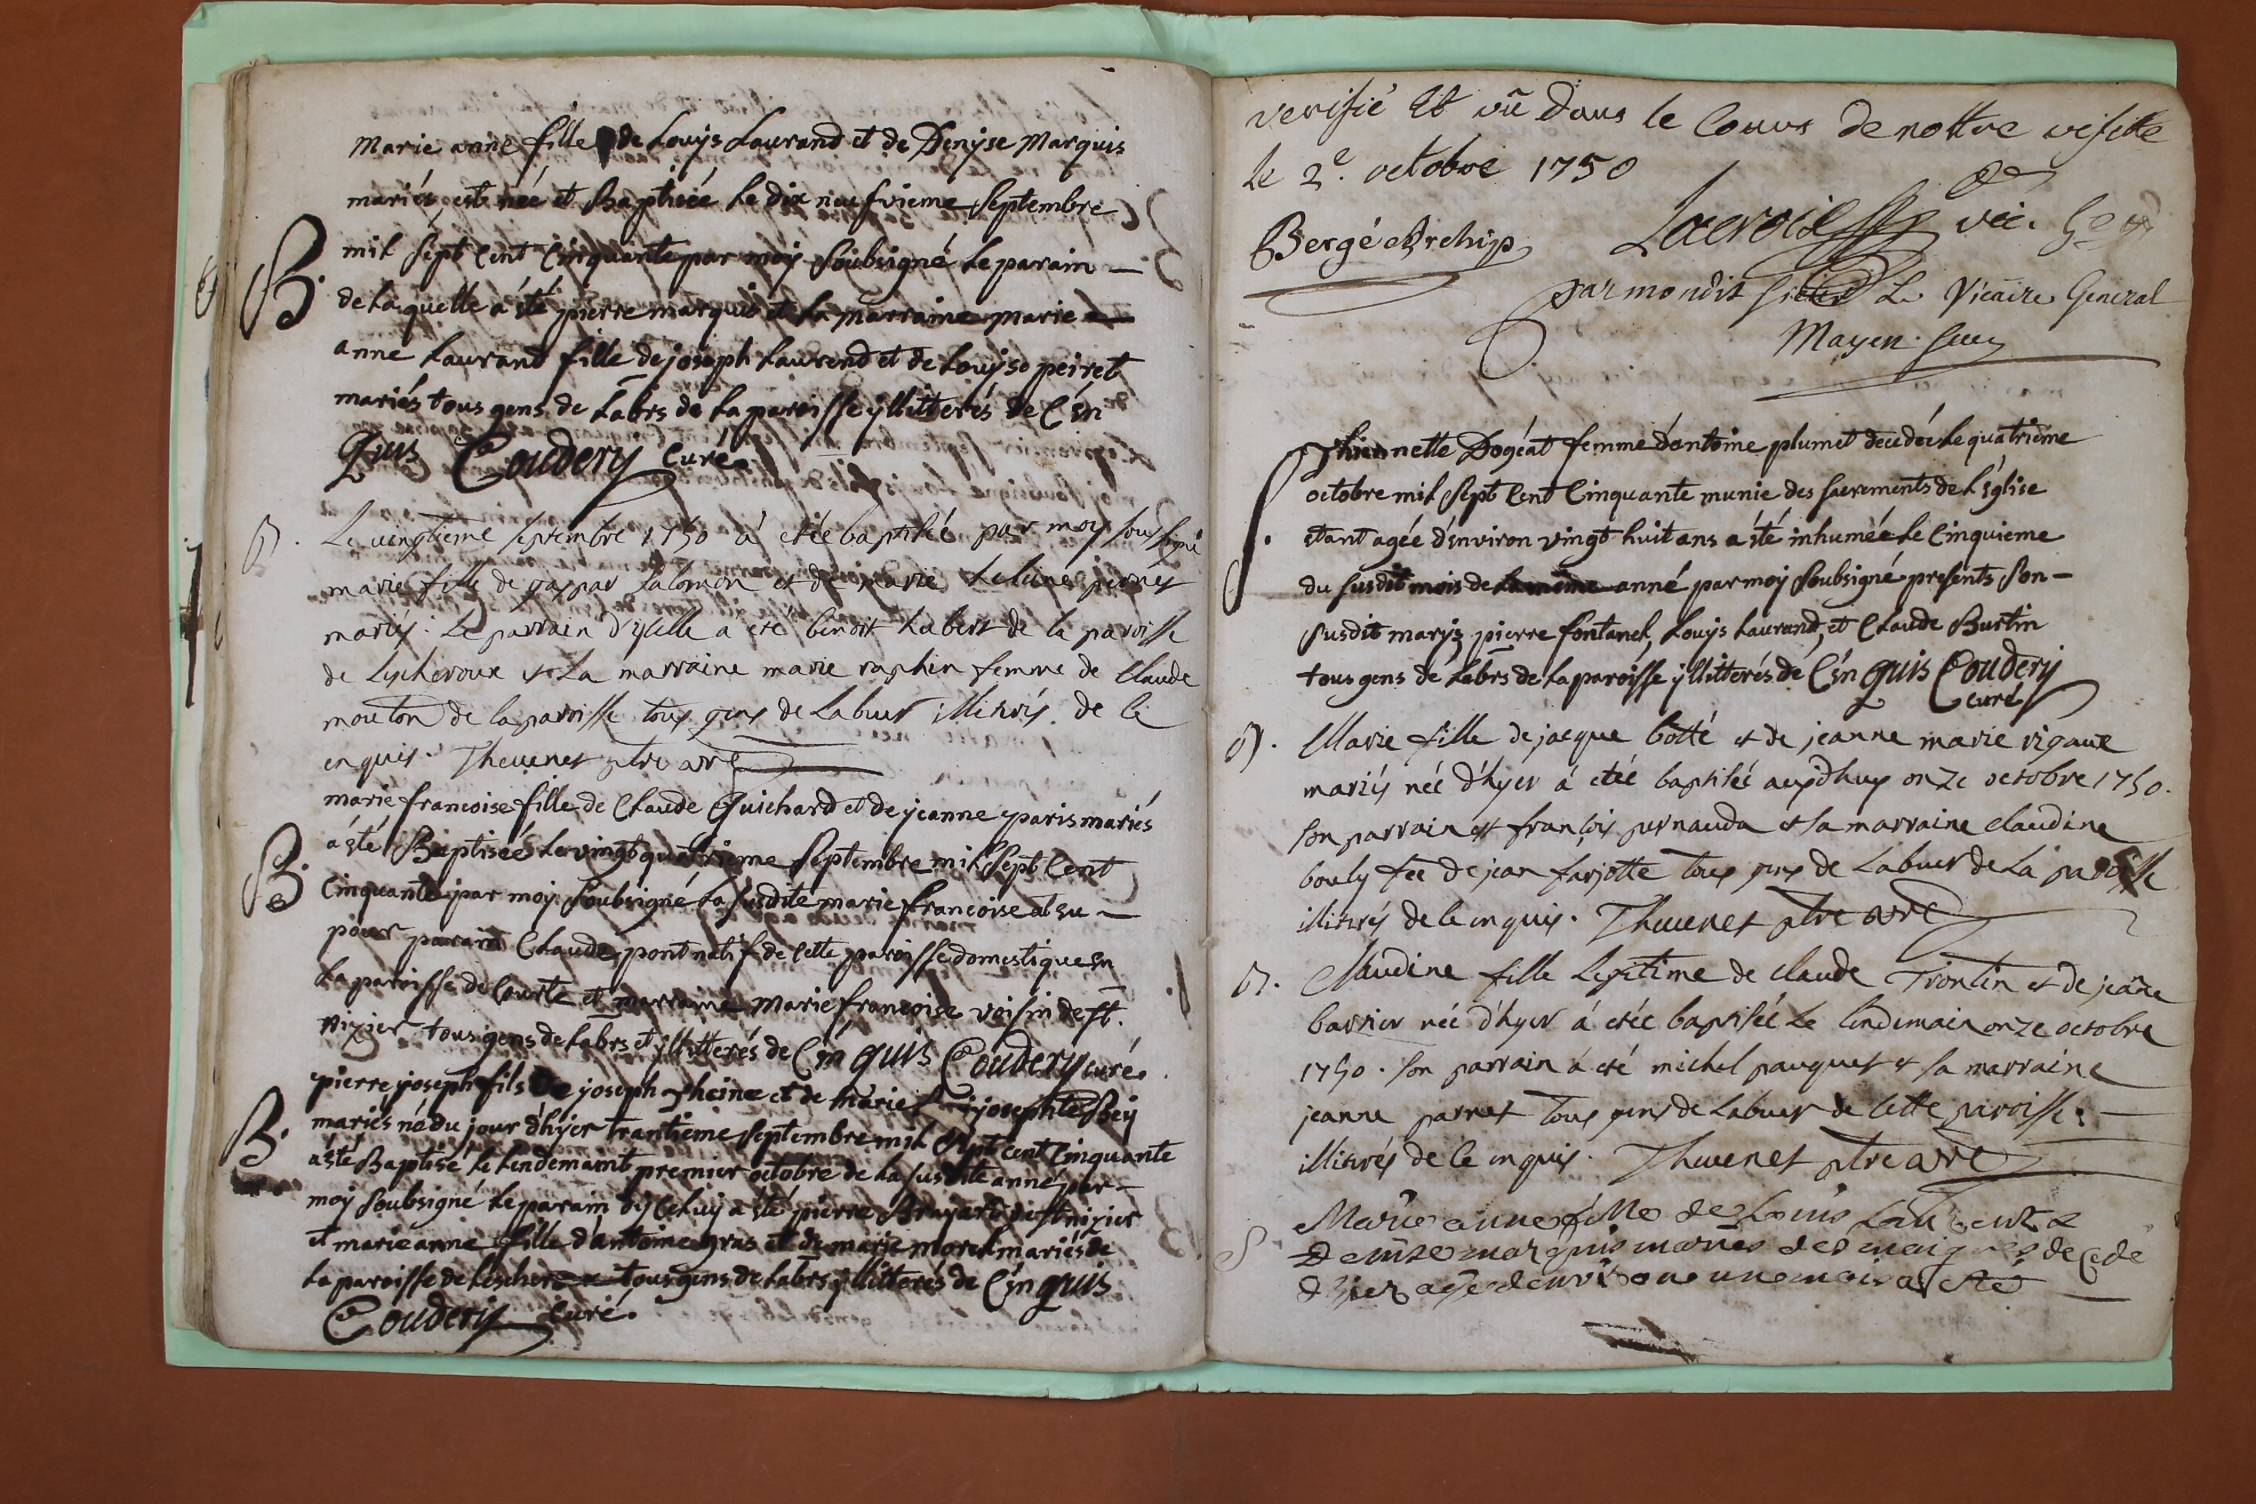 Marie anne fille de Louys Laurand et de Denyse Marquis
mariés, est née et Baptisée le dix neufvieme Septembre
B. mil Sept Cent Cinquante par moy Soubsigné le parain
de laquelle a été pierre marquis et la marraine marie
anne Laurand fille de joseph Laurend et de Louyse peiret
mariés tous gens de Labrs de la paroisse yllitterés de C én
quis Coudery Curé.
B. Le vingtieme septembre 1750 à etée baptisée par moy soussigné
marie fille de gaspar Salomon et de marie
mariés. Le parrain d'ycelle a été benoit Labert de la paroisse
de Lescheroux et La marraine marie raphin femme de Claude
mouton de la paroisse tous gens de Labeur illitirés. de ce
enquis. Thevenet ptre
marie francoise fille de Claude Guichard et de jeanne paris mariés
a été Baptisée le vingt quatrieme Septembre mil Sept Cent
B. Cinquante par moy Soubsigné, la susdite marie francoise a eu
pour parain Claude pont natif de cette paroisse domestique en
la paroisse de Courte et marraine Marie francoise voisin de st.
nizier tous gens de Labrs et yllitterés de C én quis Coudery curé.
pierre joseph fils de joseph et de Marie josephte Bey
mariés né du jour d'hÿer trantieme Septembre mil Sept cent Cinquante
B. a été Baptisé le lendemaint premier octobre de la susdite anné par
moy Soubsigné le parain d'yceluy a été pierre Bruyard de st nizier
et marie anne fille d'antoine gras et de marie morel mariés de
la paroisse de Lescheroux tous gens de Labrs yllitterés de C én quis
Coudery Curé.
verifié Et vû Dans le Cours de nottre visitte
le 2e. octobre 1750
Bergé Archip. Lacroix vic. Gen
par mondit Sieur Le Vicaire General
Mayen
S. Thiennette Dogéat femme d'antoine plumet decedée le quatrieme
octobre mil Sept Cent Cinquante munie des sacrements de l'église
etant agée d'environ vingt huit ans a été inhumée le Cinquieme
du susdit mois de la même anné par moy Soubsigné presents son
susdit mary, pierre fontanel, Louys Laurand, et Claude Burtin
tous gens de Labrs de la paroisse yllitterés de C én quis Coudery
Curé
B. Marie fille de jacque botté et de jeanne marie rigaux
mariés née d'hyer à etée baptisée aujd'huy onze octobre 1750.
son parrain est françois pernauda et sa marraine claudine
bouly fee de jean farjotte tous gens de Labeur de La paroisse
illitirés de ce enquis. Thevenet ptre
B. Claudine fille Legitime de claude Trontin et de jeane
barrier née d'hyer à etée baptisée Le lendemain onze octobre
1750. son parrain à eté michel pauquet et sa marraine
jeanne parnet tous gens de Labeur de cette paroisse.
illitirés de ce enquis. Thevenet ptre
S Marie anne fille de Louis Laurent &
Denise marquis mariés de Cedé
d'hier agée denviron un mois a été